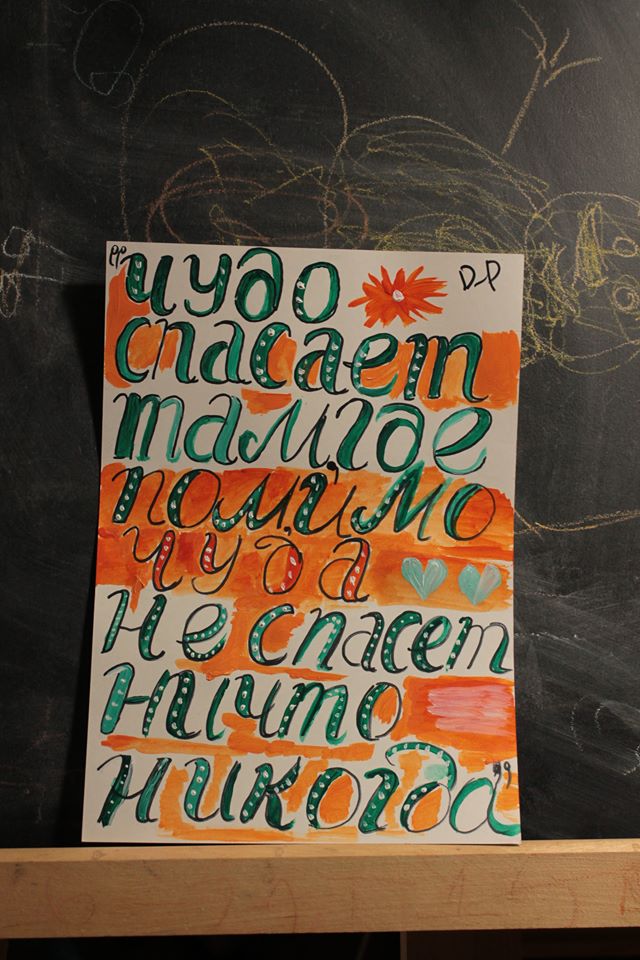 "чудо D-P
спасает
там, где
помимо
чуда
не спасет
ничто
никогда"